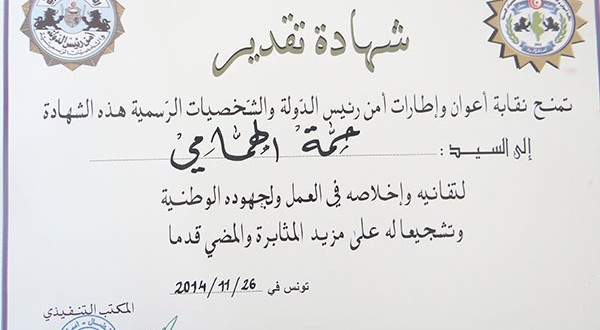 شهادة تقدير
تمنح نقابة أعوان وإطارات أمن رئيس الدولة والشخصيات الرسمية هذه الشهادة
إلى السيد : حمة الهمامي
لتفانيه وإخلاصه في العمل ولجهوده الوطنية
وتشجيعا له على مزيد المثابرة والمضي قدما
تونس في 2014/11/26
المكتب التنفيذي